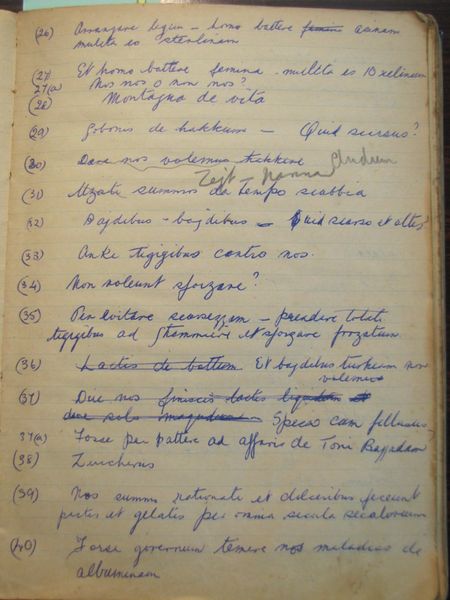 (26) Arrangare ligum - homo battere asinam
muleta es sterlinam
(27) Et homo battere femina - muleta es 10 xelinum
27(a) Nos nos o non nos?
(28) Montagna de vita
(29) Gobonus de hakkum - Quid sursus?
(30) Dare nos volemus
Zejt - Nanna
(31) Alzati summus da tempo scabbia
(32) Bajdibus - bajdibus - Quid scarso et altes?
(33) Anke tigigibus contro nos.
(34) Non voleunt sforzare?
(35) Per evitare scarsezzam - prendere toteti
tigigibus ad et sforzare frozatum
(36) Lactis de battum Et bajdibus turkum non
volemus
(37) Dice nos finiscis lactes
dare solo Specie cum fellusus
37(a) Forse per battere ad affaris de Toni Bajjadam
(38) Zuccherus
(39) Nos summus rationati et dolceribus feceunt
pastes et gelatis per omnia secula secolorum
(40) Forse governum temere nos maladias de
albuminam